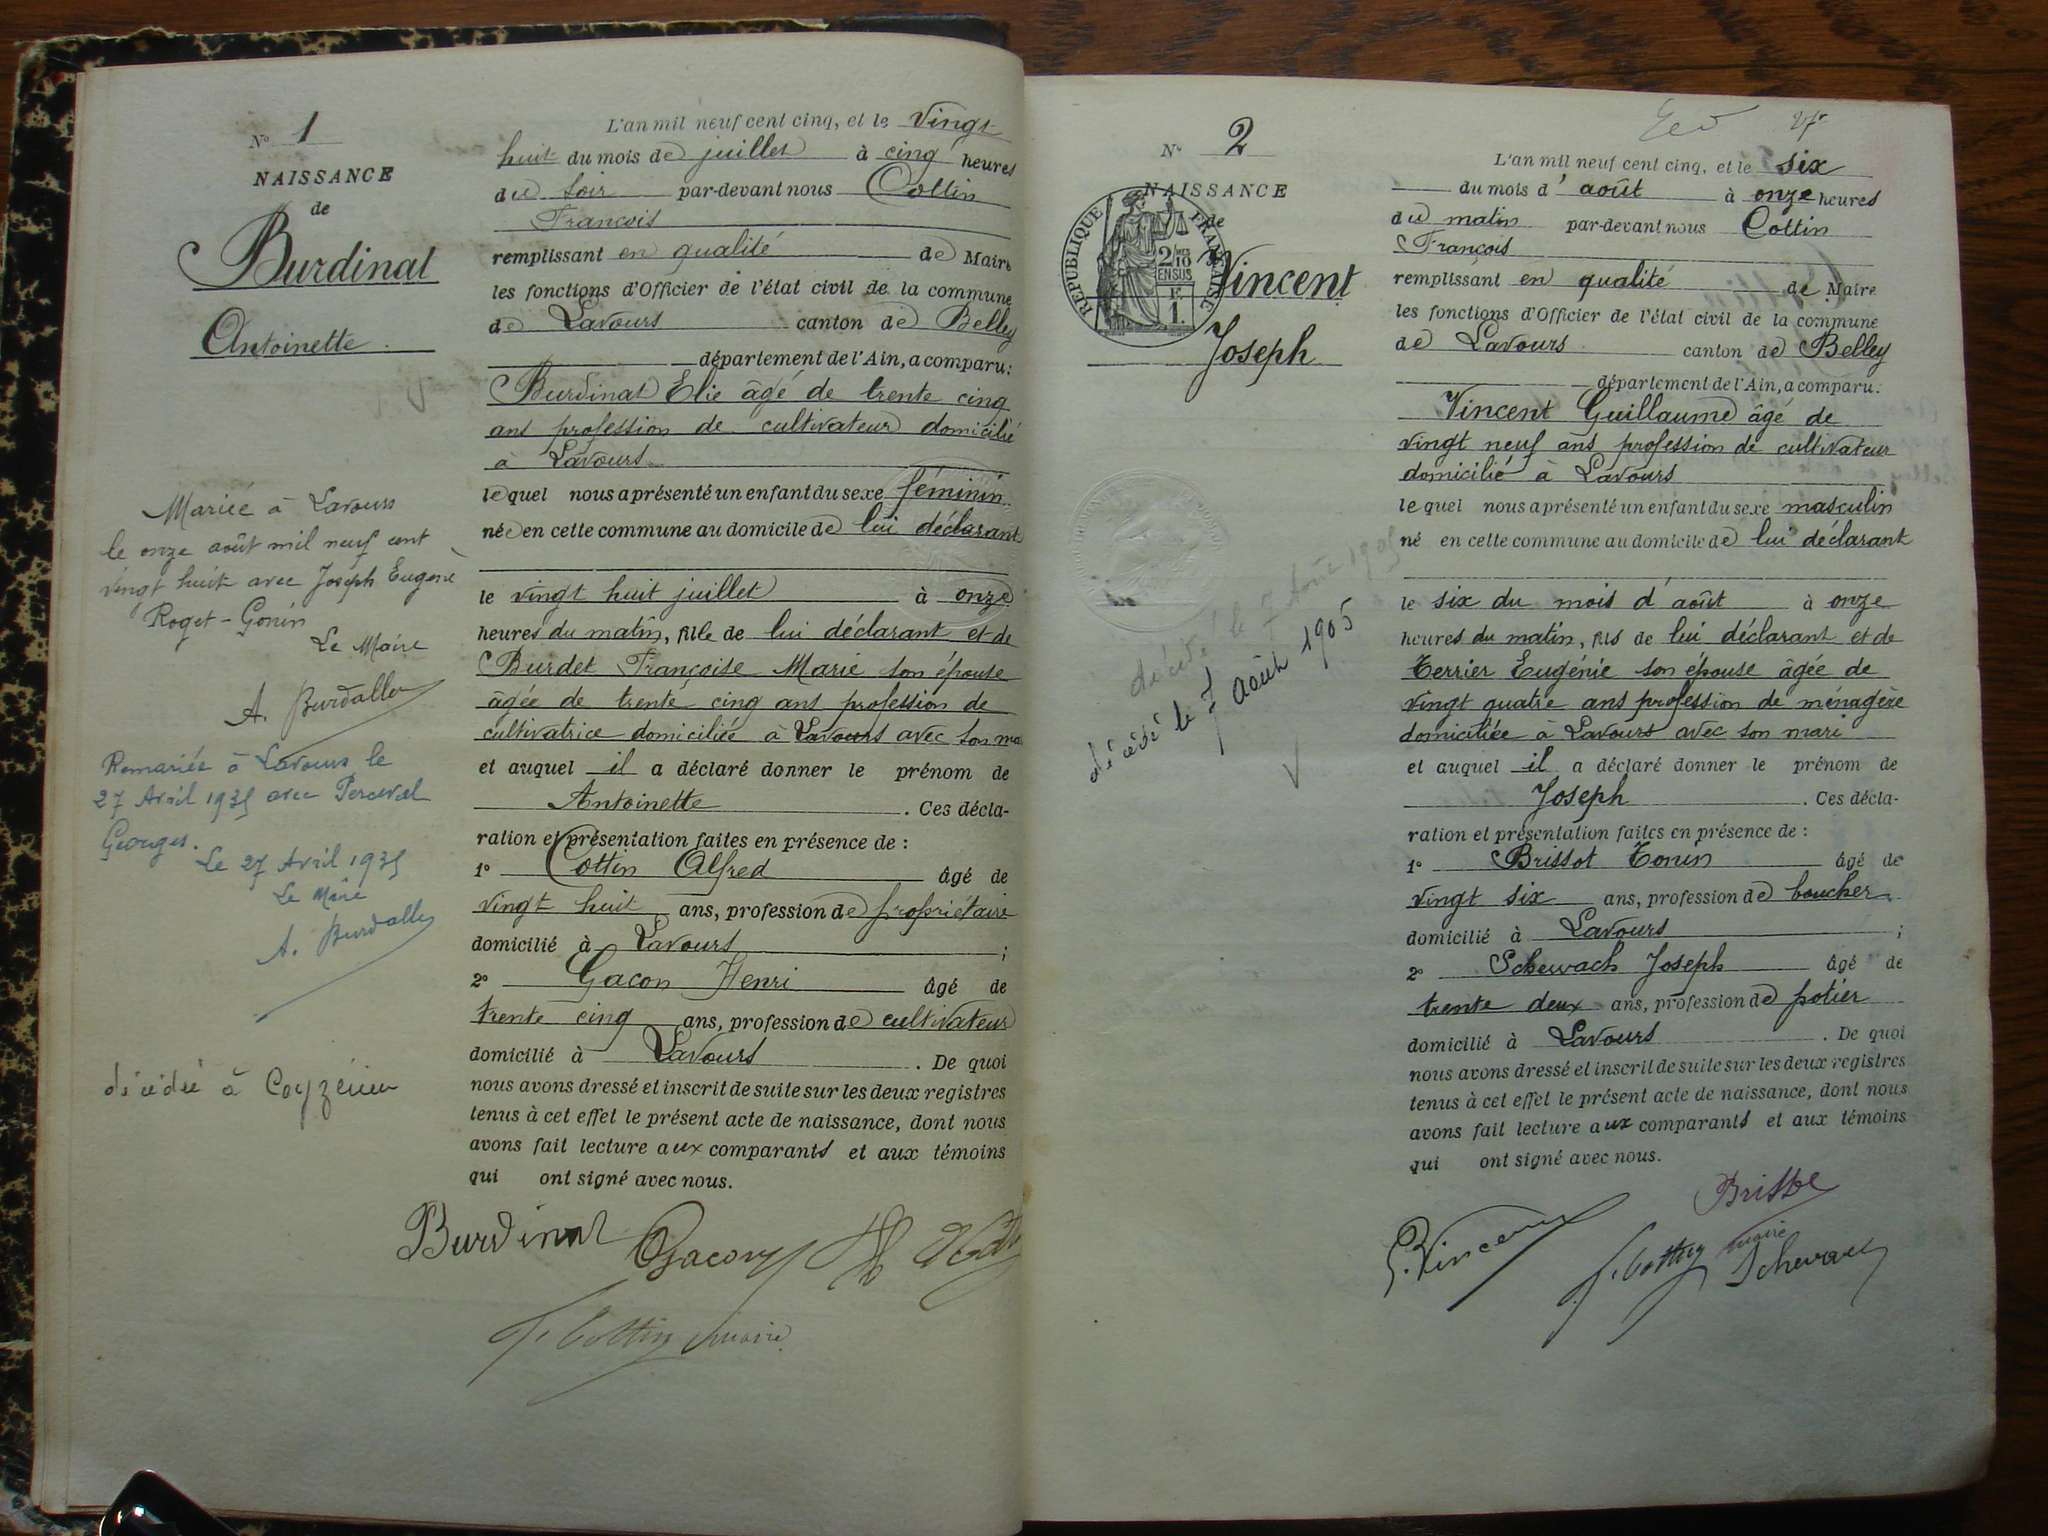 N° 1
NAISSANCE
de
Burdinat
Antoinette
Mariée à Lavours
le onze août mil neuf cent
vingt huit avec Joseph Eugène
Roget-Gonin
Le Maire
A. Burdallet
Remariée à Lavours le
27 Avril 1935 avec Perceval
Georges.
Le 27 Avril 1935
Le Maire
A. Burdallet
décédée à Ceyzérieu
L'an mil neuf cent cinq, et le vingt
huit du mois de juillet à cinq heures
du soir par-devant nous Cottin
François
remplissant en qualité de Maire
les fonctions d'Officier de l'état civil de la commune
de Lavours canton de Belley
département de l'Ain, a comparu:
Burdinat Elie âgé de trente cinq
ans profession de cultivateur domicilié
à Lavours
lequel nous a présenté un enfant du sexe féminin
née en cette commune au domicile de lui déclarant
le vingt huit juillet à onze
heures du matin, fille de lui déclarant et de
Burdet Françoise Marie son épouse
âgée de trente cinq ans profession de
cultivatrice domiciliée à Lavours avec son ma
et auquel il a déclaré donner le prénom de
Antoinette. Ces décla-
ration et présentation faites en présence de :
1° Cottin Alfred âgé de
vingt huit ans, profession de propriétaire
domicilié à Lavours ;
2° Gacon Henri âgé de
trente cinq ans, profession de cultivateur
domicilié à Lavours. De quoi
nous avons dressé et inscrit de suite sur les deux registres
tenus à cet effet le présent acte de naissance, dont nous
avons fait lecture aux comparants et aux témoins
qui ont signé avec nous.
Burdinat Gacon H
F. Cottin maire
27
N° 2
NAISSANCE
de
Vincent
Joseph
REPUBLIQUE FRANÇAISE
2/10
EN SUS
1.
décédé le 7 août 1905
décédé le 7 août 1905
L'an mil neuf cent cinq, et le six
du mois d'août à onze heures
du matin par-devant nous Cottin
François
remplissant en qualité de Maire
les fonctions d'Officier de l'état civil de la commune
de Lavours canton de Belley
département de l'Ain, a comparu:
Vincent Guillaume âgé de
vingt neuf ans profession de cultivateur
domicilié à Lavours
lequel nous a présenté un enfant du sexe masculin
né en cette commune au domicile de lui déclarant
le six du mois d'août à onze
heures du matin, fils de lui déclarant et de
Terrier Eugénie son épouse âgée de
vingt quatre ans profession de ménagère
domiciliée à Lavours avec son mari
et auquel il a déclaré donner le prénom de
Joseph. Ces décla-
ration et présentation faites en présence de :
1° Brissot Tonin âgé de
vingt six ans, profession de boucher
domicilié à Lavours ;
2° Schewach Joseph âgé de
trente deux ans, profession de potier
domicilié à Lavours. De quoi
nous avons dressé et inscrit de suite sur les deux registres
tenus à cet effet le présent acte de naissance, dont nous
avons fait lecture aux comparants et aux témoins
qui ont signé avec nous.
G. Vincent
F. Cottin maire